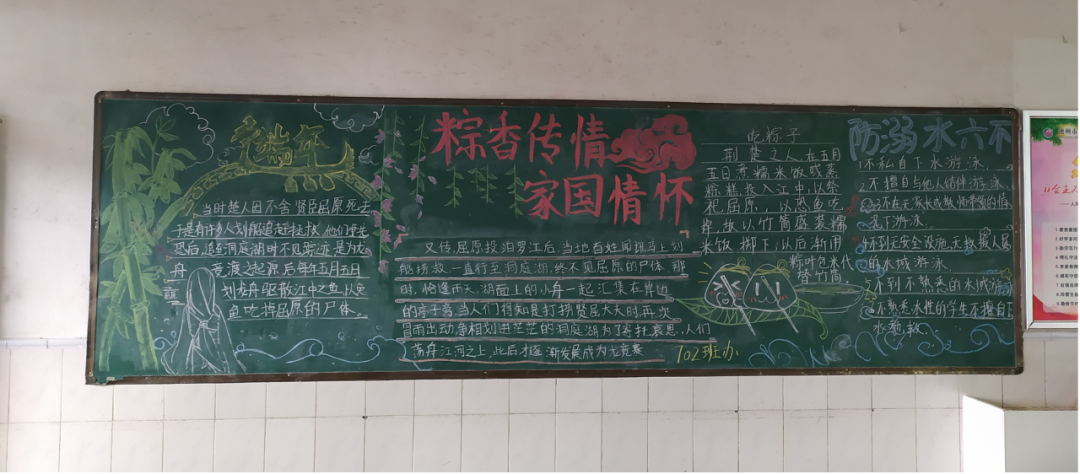 粽香传情
家国情怀
当时楚人因不舍贤臣屈原死去
于是有许多人划船追赶拯救,他们争先
恐后,追至洞庭湖时不见踪迹是为龙
舟竞渡之起源后每年五月五日
划龙舟驱散江中之鱼,以免
鱼吃掉屈原的尸体。
又传屈原投汨罗江后,当地百姓闻讯马上划
船捞救,一直行至洞庭湖,终不见屈原的尸体 那
时,恰逢雨天,湖面上的小舟一起汇集在岸边
的亭子旁 当人们得知是打捞贤臣大夫时再次
冒雨出动争相划进茫茫的洞庭湖为了寄托哀思,人们
荡舟江河之上,此后才逐渐发展成为龙舟竞赛
702班办
吃粽子
荆楚之人,在五月
五日煮糯米饭或蒸
粽糕投入江中,以祭
祀屈原,以恐鱼吃
掉,故以竹筒盛装糯
米饭掷下,以后渐用
粽叶包米代
替竹筒
防溺水六不
1不私自下水游泳
2不擅自与他人结伴游泳
3不在无家长或教师带领的情
况下游泳
4不到无安全设施,无救援人员
的水域游泳
5不到不熟悉的水域游泳
6不熟悉水性的学生不擅自下
水施救